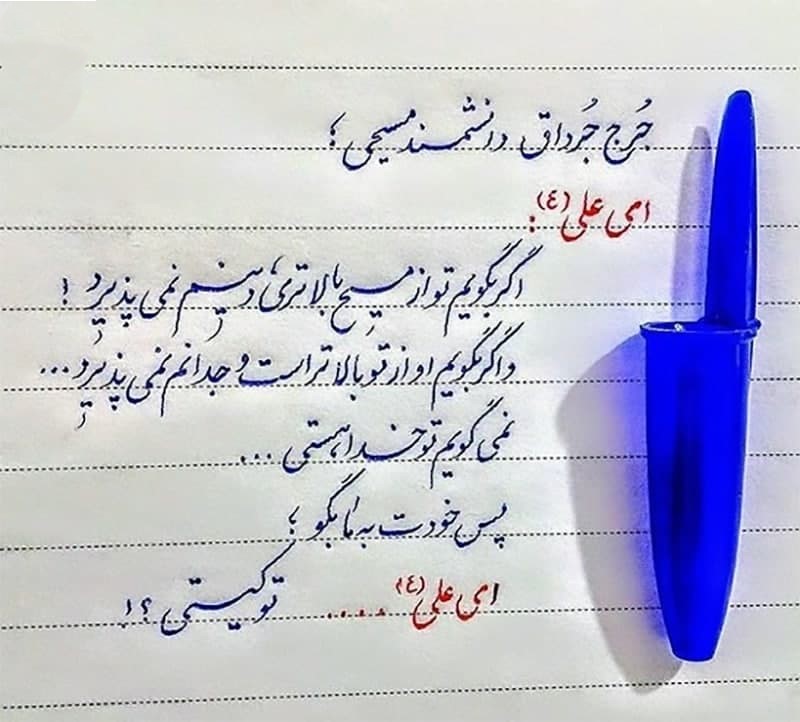 جُرج جُرداق دانشمند مسیحی ؛
ای علی (ع) :
اگر بگویم تو از مسیح بالاتری، دینم نمی پذیرد !
و اگر بگویم او از تو بالاتر است وجدانم نمی پذیرد ...
نمی گویم تو خدا هستی ...
پس خودت به ما بگو ؛
ای علی (ع) .... تو کیستی ؟!